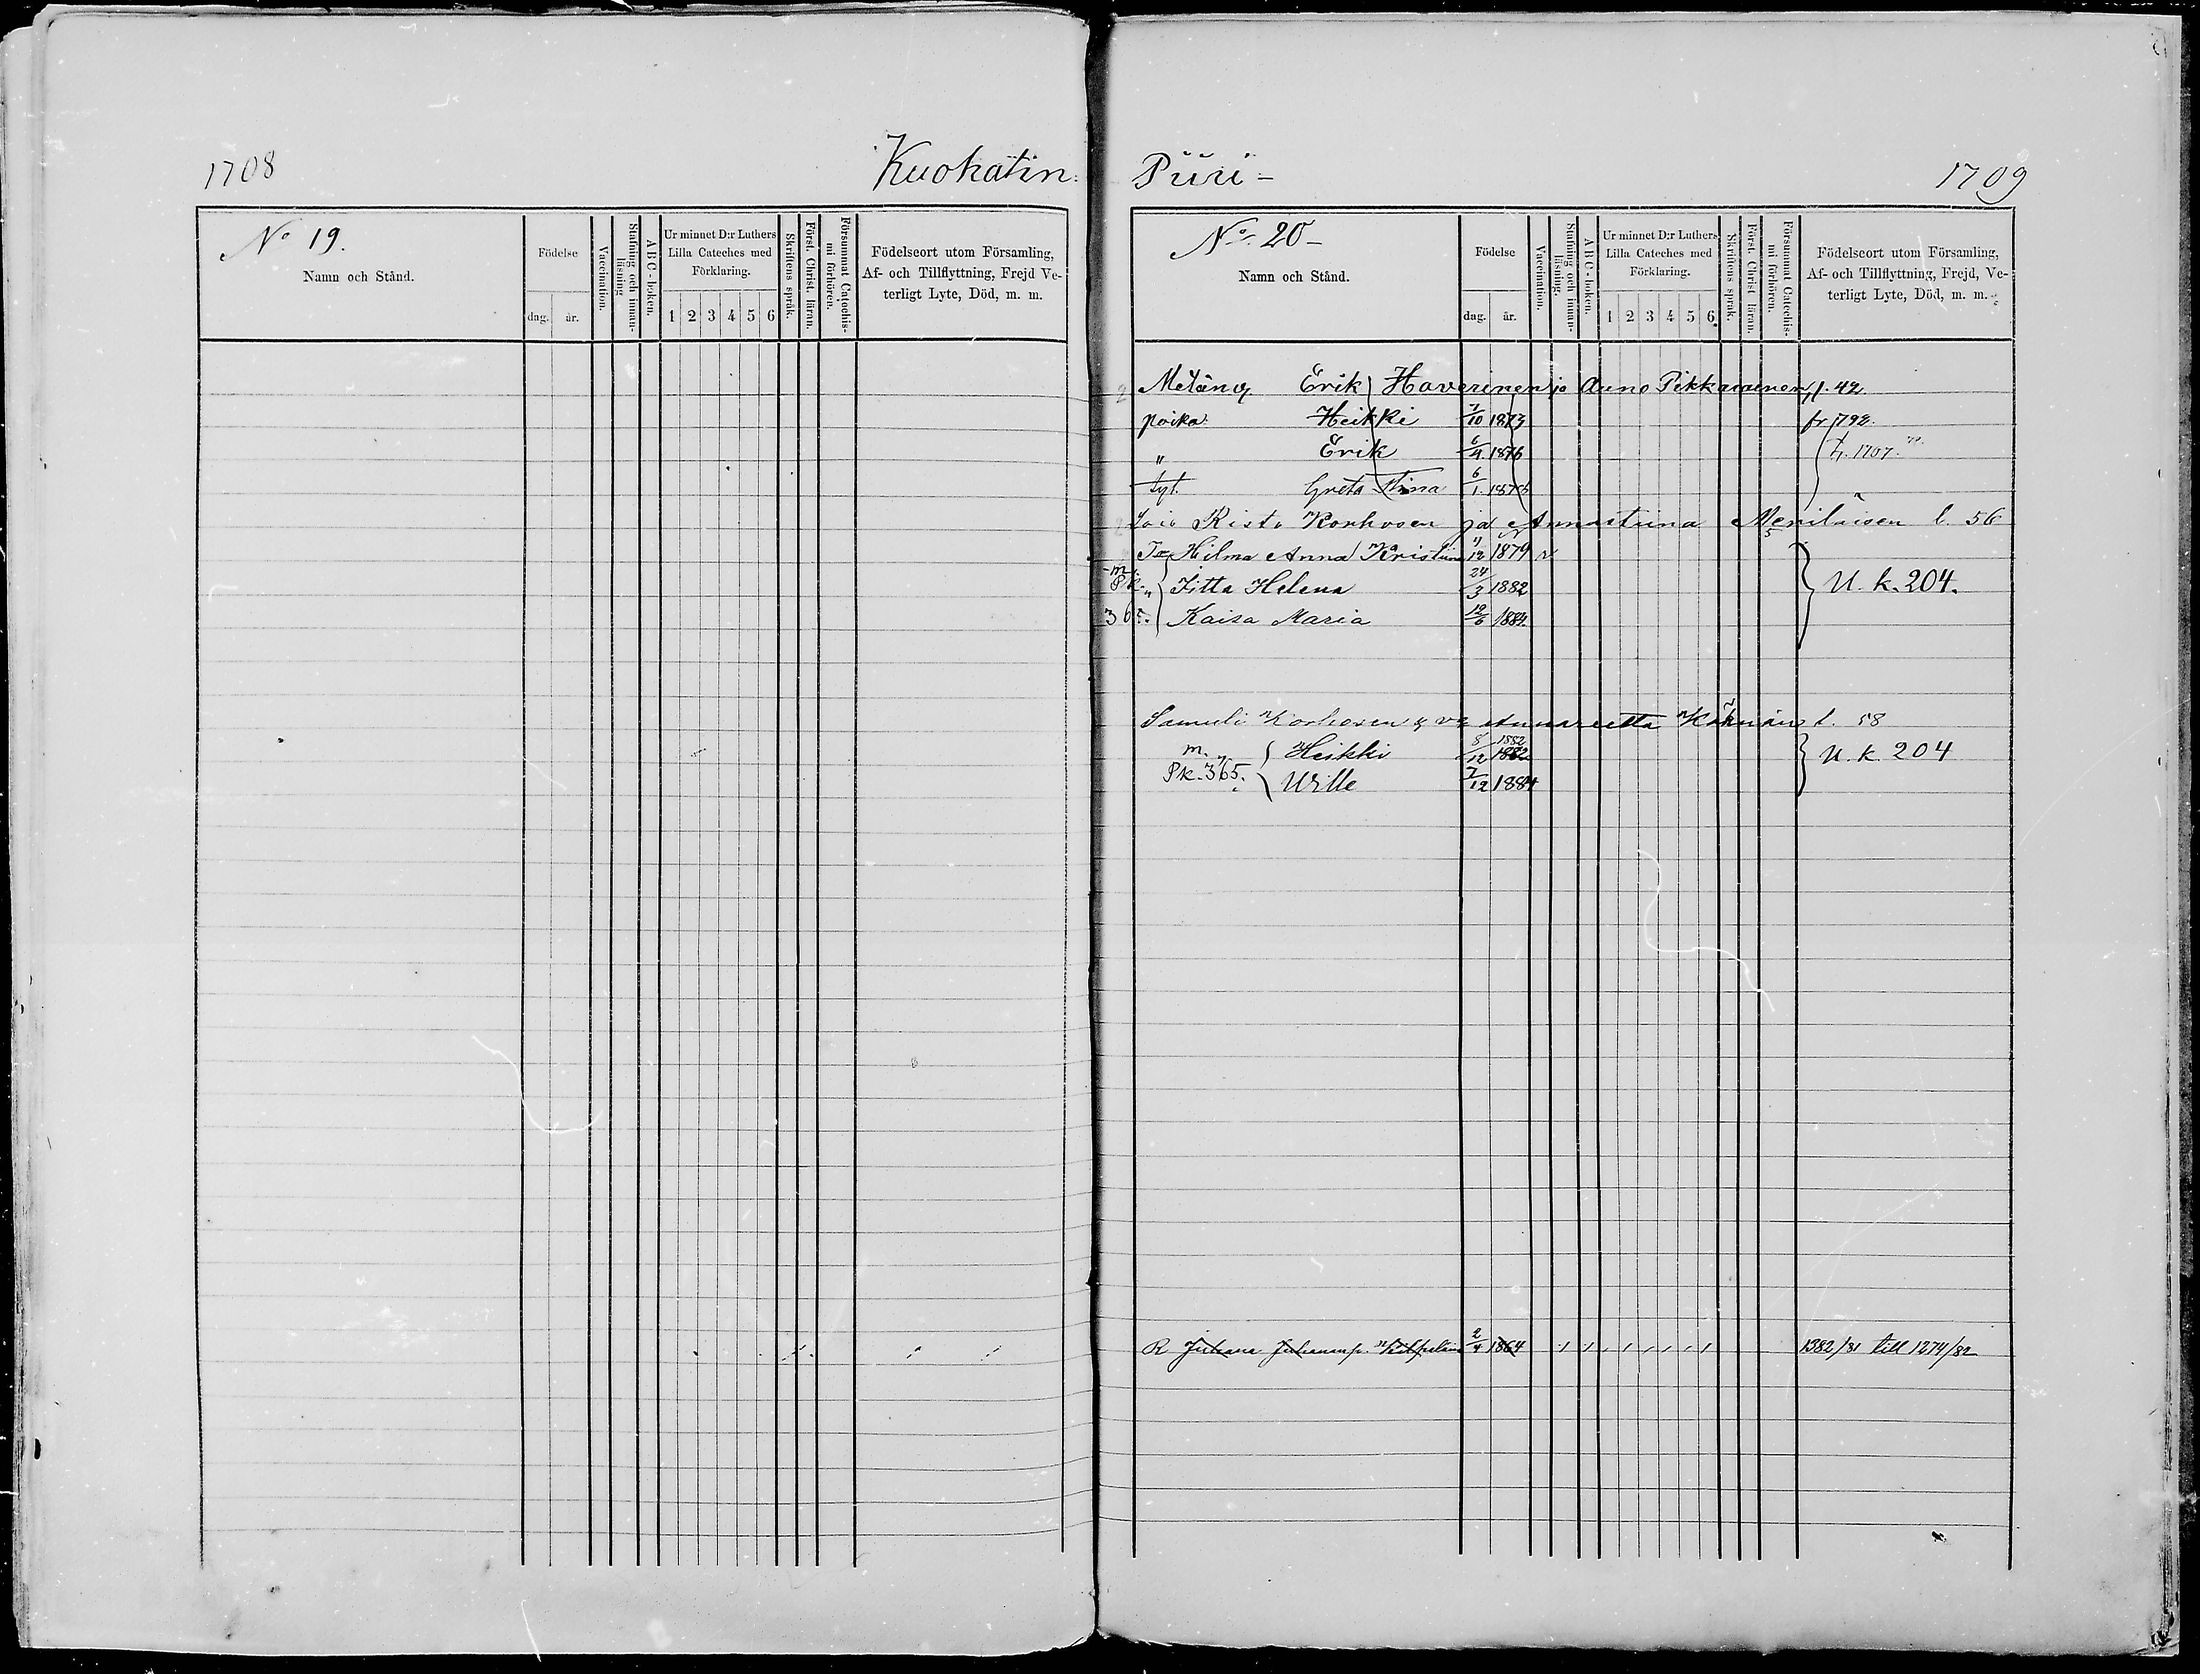 1708 Kuokatin
No 19.
Namn och Stånd.
Födelse
dag. år.
Vaccination.
Stafning och innan-läsning
ABC-boken.
Ur minnet D:r Luthers Lilla Cateches med Förklaring.
1 2 3 4 5 6
Skriftens språk.
Först. Christ. läran.
Försummat Catechis-mi förhören.
Födelseort utom Församling, Af- och Tillflyttning, Frejd Ve-terligt Lyte, Död, m. m.
Piiri- 1709
No. 20-
Namn och Stånd.
Födelse
dag. år.
Vaccination.
Stafning och innan-läsning.
ABC-boken.
Ur minnet D:r Luthers Lilla Cateches med Förklaring.
1 2 3 4 5 6
Skriftens språk.
Först. Christ. läran.
Försummat Catechis-mi förhören.
Födelseort utom Församling, Af- och Tillflyttning, Frejd, Ve-terligt Lyte, Död, m. m.
Erik Haverinen ja Anna Pikkarainen l. 42
poika Heikki 7/10 1873 fr 1792
" Erik 6/4 1876 h. 1707
tyt. Greta Stina 6/1 1878
Lois Risto Korhosen ja Annastiina Meriläisen l. 56
Hilma Anna Kristiina 11/12 1879 v
m Pk. " Iitta Helena 24/3 1882 U. k. 204.
365. Kaisa Maria 1884
Samuli Korhosen & va Annareetta l. 58
m. Heikki 8/12 1882 1882 U. k. 204
Pk. 365. Wille 7/12 1884
R Juhana Juhananp. 2/4 1864 1382/81 till 1274/82